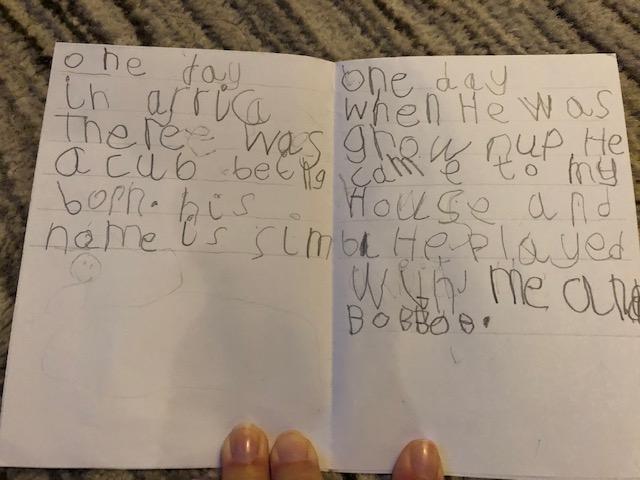 one day
in arrica
There was
a cub being
born. his
name is simba
one day
when He was
grow nup He
came to my
House and
He played
with me and
BoBBoB.